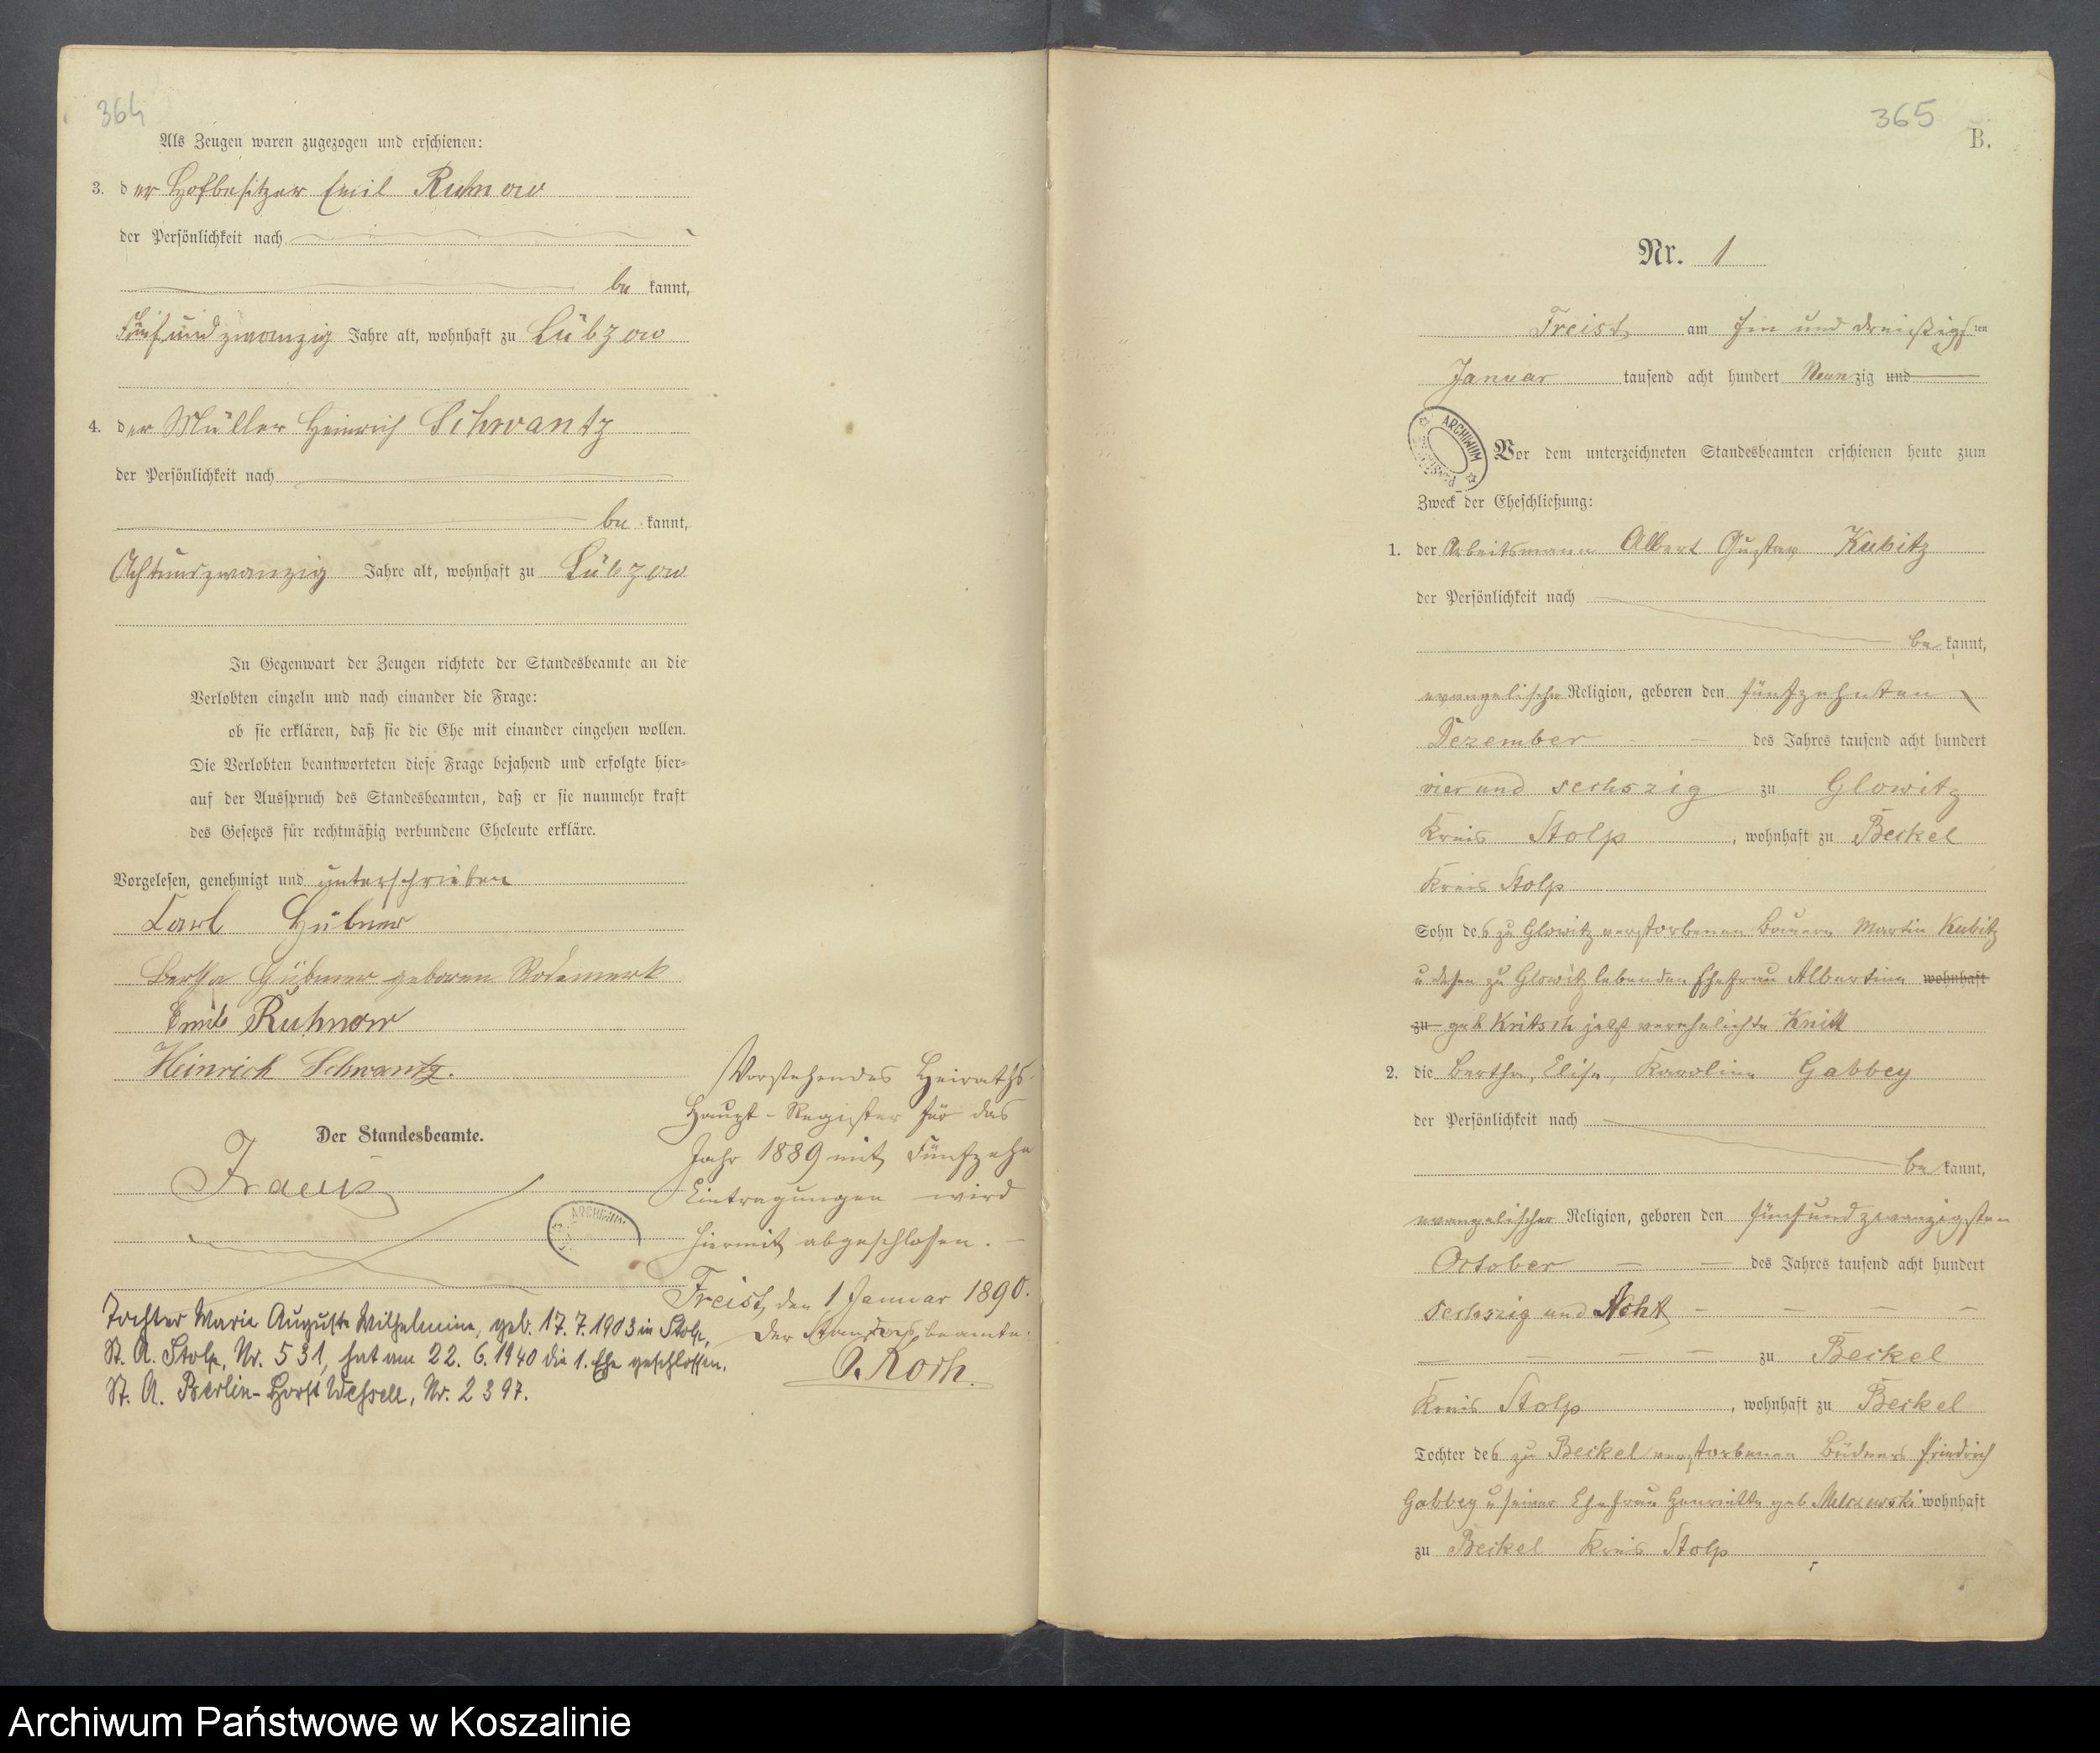 364
Als Zeugen waren zugezogen und erschienen:
3. der Hofbesitzer Emil Ruhnow
der Persönlichkeit nach
be kannt,
Fünfundzwanzig Jahre alt, wohnhaft zu Lübzow
4. der Müller Heinrich Schwantz
der Persönlichkeit nach
be kannt,
Achtundzwanzig Jahre alt, wohnhaft zu Lübzow
In Gegenwart der Zeugen richtete der Standesbeamte an die
Verlobten einzeln und nach einander die Frage:
ob sie erklären, daß sie die Ehe mit einander eingehen wollen.
Die Verlobten beantworteten diese Frage bejahend und erfolgte hier=
auf der Ausspruch des Standesbeamten, daß er sie nunmehr kraft
des Gesetzes für rechtmäßig verbundene Eheleute erkläre.
Vorgelesen, genehmigt und unterschrieben
Carl Hübner
Bertha Hübner geboren Rodemerk
Emil Ruhnow
Heinrich Schwantz.
Der Standesbeamte.
ARCHIWUM
Tochter Marie Auguste Wilhelmine, geb. 17.7.1903 in Stolp,
St. A. Stolp, Nr. 531, hat am 22. 6. 1940 die 1. Ehe geschlossen.
St. A. Berlin-Horst Wessell, Nr. 2397.
Vorstehendes Heiraths-
Haupt-Register für das
Jahr 1889 mit Fünfzehn
Eintragungen wird
hiermit abgeschlossen.
Freist, den 1 Januar 1890.
Der Standesbeamte.
O. Koch.
365
B.
Nr. 1
Freist am Ein und dreißigsten
Januar tausend acht hundert Neunzig und
ARCHIWUM
Vor dem unterzeichneten Standesbeamten erschienen heute zum
Zweck der Eheschließung:
1. der Arbeitsmann Albert Gustav Kubitz
der Persönlichkeit nach
be kannt,
evangelischer Religion, geboren den fünfzehnten
Dezember des Jahres tausend acht hundert
vier und sechszig zu Glowitz
Kreis Stolp, wohnhaft zu Beckel
Kreis Stolp
Sohn des zu Glowitz verstorbenen Bauern Martin Kubitz
u dessen zu Glowitz lebenden Ehefrau Albertine wohnhaft
zu geb Kritsch jetzt verehelichte Knitt
2. die Bertha, Elise, Karoline Gabbey
der Persönlichkeit nach
be kannt,
evangelischer Religion, geboren den fünfundzwanzigsten
October des Jahres tausend acht hundert
sechszig und Acht
zu Beckel
Kreis Stolp, wohnhaft zu Beckel
Tochter des zu Beckel verstorbenen Büdners Friedrich
Gabbey u seiner Ehefrau Henriette geb Melczewski wohnhaft
zu Beckel Kreis Stolp
Archiwum Państwowe w Koszalinie